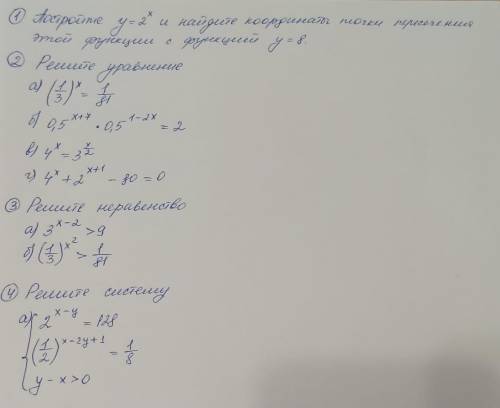 ① Постройте y=2^x и найдите координаты точки пересечения
этой функции с функцией y=8.
② Решите уравнение
а) (1/3)^x = 1/81
б) 0,5^(x+7) · 0,5^(1-2x) = 2
в) 4^x = 3^(x/2)
г) 4^x + 2^(x+1) - 80 = 0
③ Решите неравенство
а) 3^(x-2) > 9
б) (1/3)^(x^2) > 1/81
④ Решите систему
а) { 2^(x-y) = 128
(1/2)^(x-2y+1) = 1/8
y-x>0